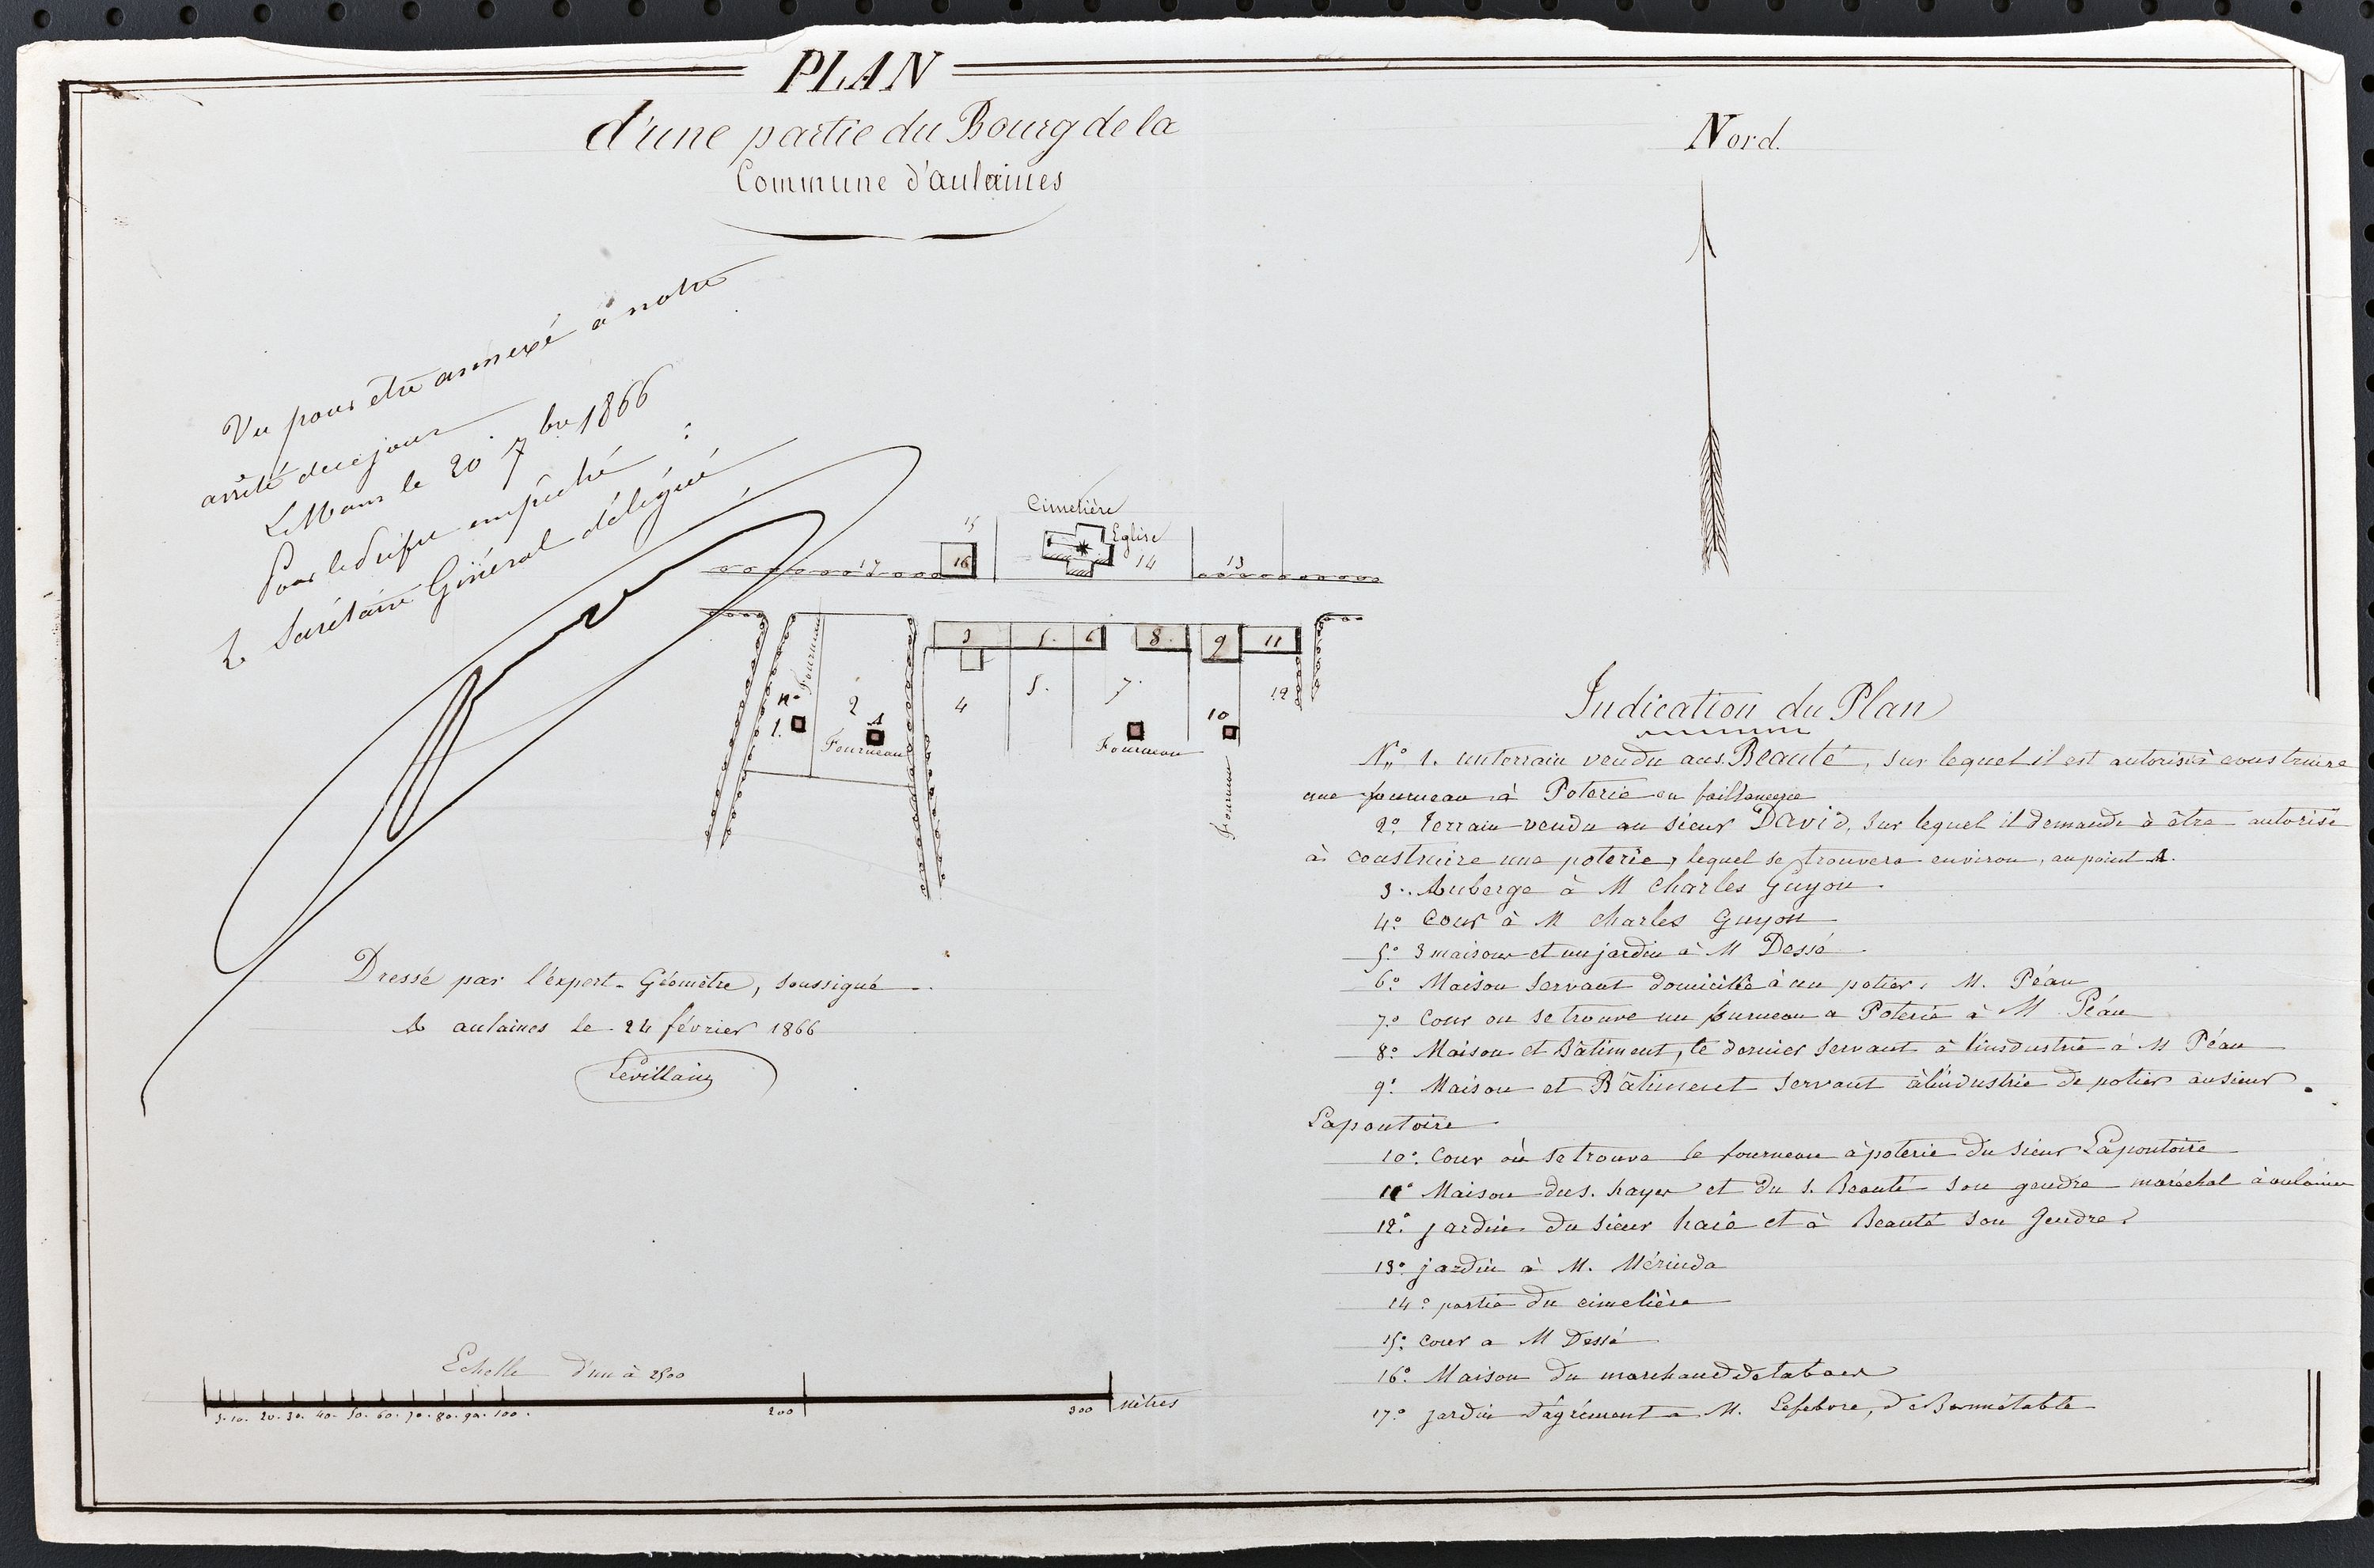 PLAN
d'une partie du Bourg de la
Commune d'aulaines
Nord.
Vu pour être annexé à notre
arrêté de ce jour
Le Mans le 20 7bre 1866
Pour le Préfet empêché :
Le Secrétaire Général délégué
Cimetière
Eglise
15
16
17
14
13
3
5.
6
8.
9
11
Fourneau
n°
1.
2
A
Fourneau
4
5.
7
Fourneau
10
Fourneau
12
Indication du Plan
N° 1. un terrain vendu au s. Beauté, sur lequel il est autorisé à construire
une fourneau à Poterie ou
2° terrain vendu au sieur David, sur lequel il demande à être autorisé
à construire une poterie, lequel se trouvera environ, au point A.
3°. Auberge à M Charles Guyon.
4° Cour à M Charles Guyon
5° 3 maisons et un jardin à M Dessé
6° Maison servant domicile à un potier, M. Péan
7° Cour ou se trouve un furneau a Poterie à M Péan
8° Maison et Bâtiment, le dernier servant à l'insdustrie à M Péan
9° Maison et Bâtiment servant à l'industrie de potier au sieur
Lapoutoire
10° Cour où se trouve le fourneau à poterie du sieur Lapoutoire
11° Maison du s. hayer et du s. Beauté son gendre maréchal à aulaines
12° jardin du sieur haié et à Beauté son Gendre
13° jardin à M. Mérinda
14° partie du cimetière
15° Cour a M Dessé
16° Maison du marchand de tabacs
17° jardin d'agrément a M. Lefebvre, de Bonnétable
Dressé par l'éxpert-Géomètre, soussigné
A aulaines le 24 février 1866
Levillain
Echelle d'un à 2500
5. 10. 20. 30. 40. 50. 60. 70. 80. 90. 100. 200 300 Mètres